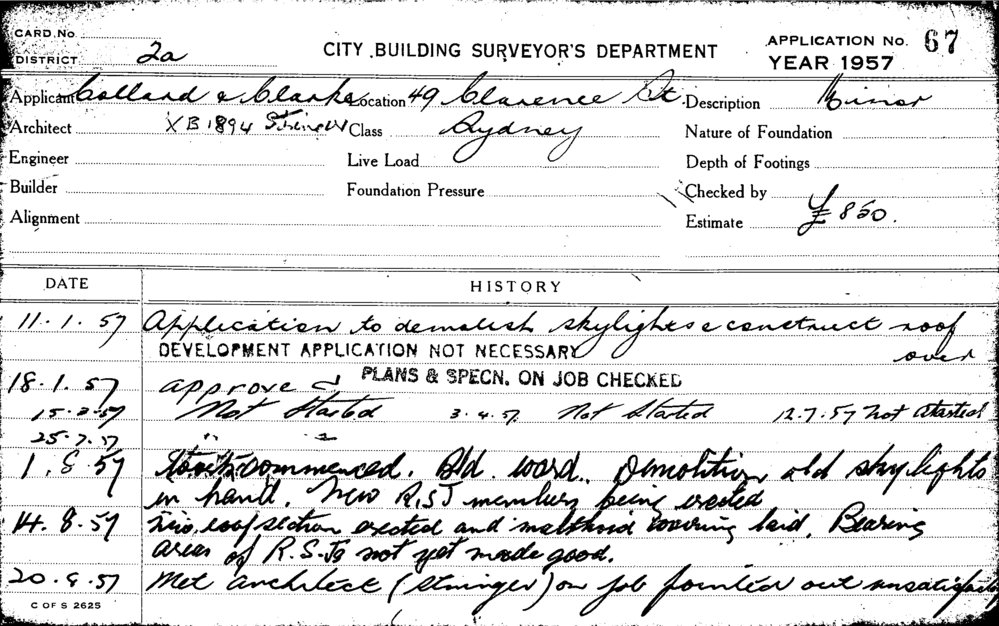 CARD No.
CITY BUILDING SURVEYOR'S DEPARTMENT
APPLICATION No. 67
DISTRICT 2a
YEAR 1957
Applicant Collard & Clarke Location 49 Clarence St. Description Minor
Architect XB1894 Class Sydney Nature of Foundation
Engineer Live Load Depth of Footings
Builder Foundation Pressure Checked by
Alignment Estimate £850.
DATE HISTORY
11.1.57 Application to demolish skylights & construct roof
over
DEVELOPMENT APPLICATION NOT NECESSARY
18.1.57 approved PLANS & SPECN. ON JOB CHECKED
15.2.57 Not Started 3.4.57 Not Started 12.7.57 not started
25.7.57 " "
1.8.57 commenced. Bld. word. Demolition old skylights
in hand. New R.S.J members being erected
14.8.57 roof section erected and malthoid covering laid. Bearing
areas of R.S.Js not yet made good.
20.9.57 Met architect (Stringer) on job pointed out unsatisfactory
C OF S 2625